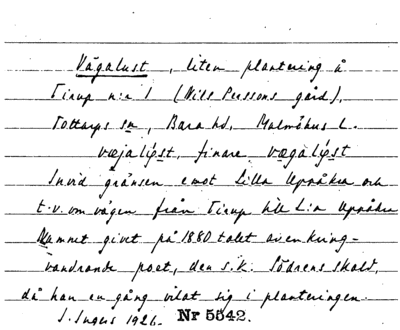 Vägalust, liten plantering å
Tirup n:r 1 (Nils Perssons gård),
Tottarps sn, Bara hd, Malmöhus l.
væjalýst, finare vægalýst
Invid gränsen emot Lilla Uppåkra och
t.v. om vägen från Tirup till L:a Uppåkra
Namnet givet på 1880 talet av en kring-
vandrande poet, den s.k. Söderns skald,
då han en gång vilat sig i planteringen.
S. Ingers 1926. Nr 5542.